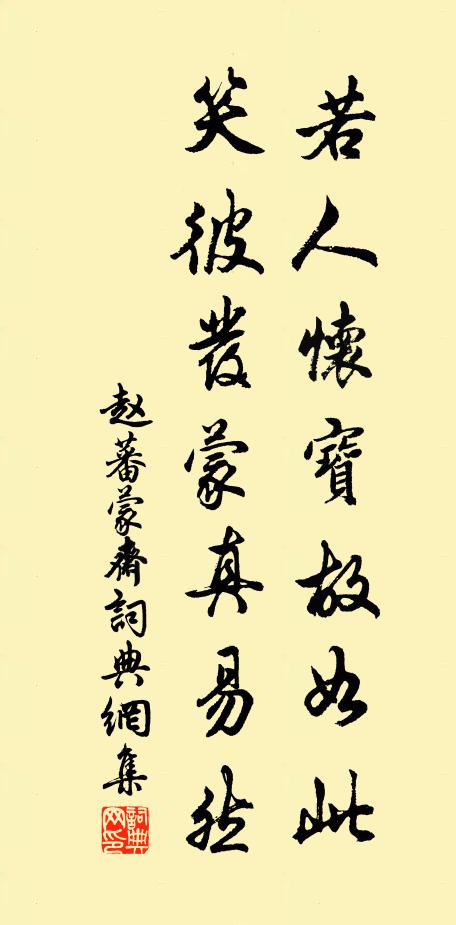 若人懷寶故如此
笑彼發蒙真易然
赵蕃蒙齋詞典網集
詞典網印